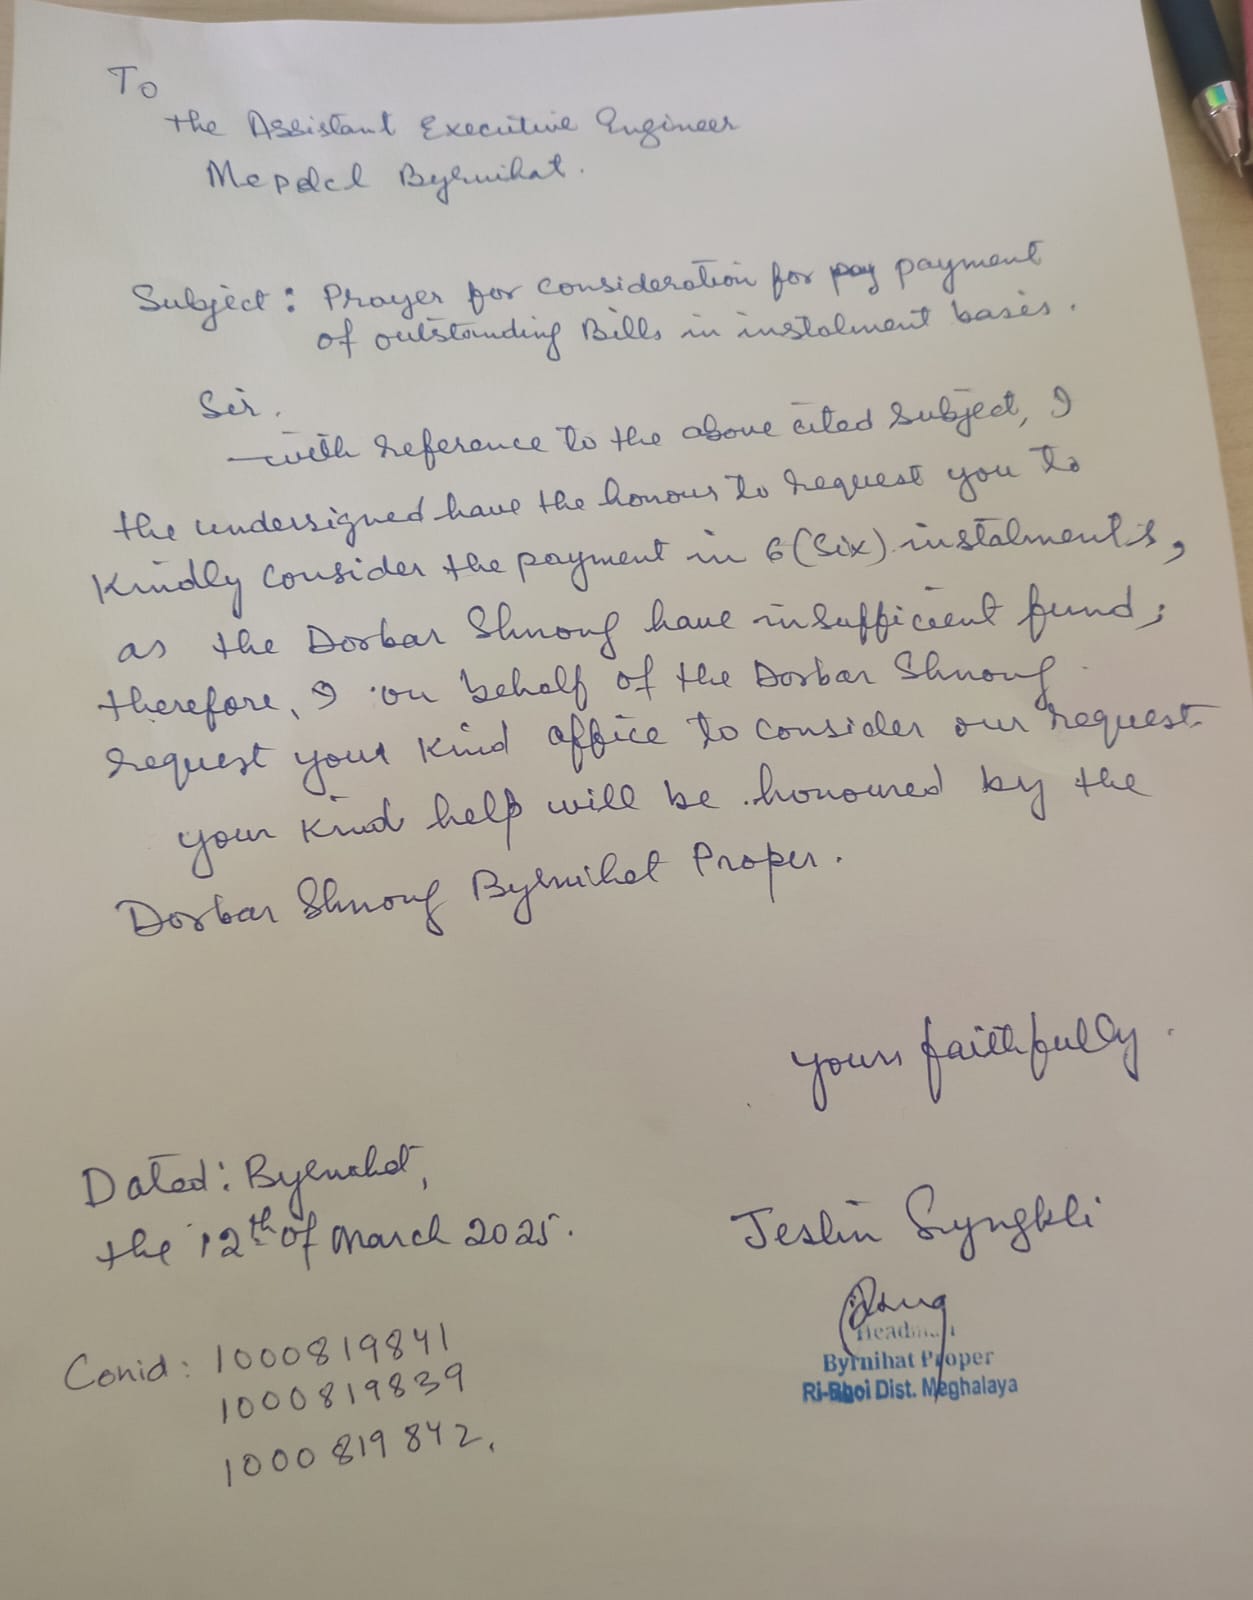 To
the Assistant Executive Engineer
Mepdcl Byrnihat.
Subject: Prayer for consideration for pay payment
of outstanding Bills in instalment basis.
Sir.
with reference to the above cited subject, I
the undersigned have the honour to request you to
Kindly consider the payment in 6 (Six) instalments,
as the Dorbar Shnong have insufficient fund;
therefore, I on behalf of the Dorbar Shnong
request your kind office to consider our request
your kind help will be honoured by the
Dorbar Shnong Byrnihat Proper.
yours faithfully.
Dated: Byrnihat,
the 12th of March 2025.
Jeslin Syngkli
Headman
Byrnihat Proper
Ri-Bhoi Dist. Meghalaya
Conid: 1000819841
1000819839
1000819842.